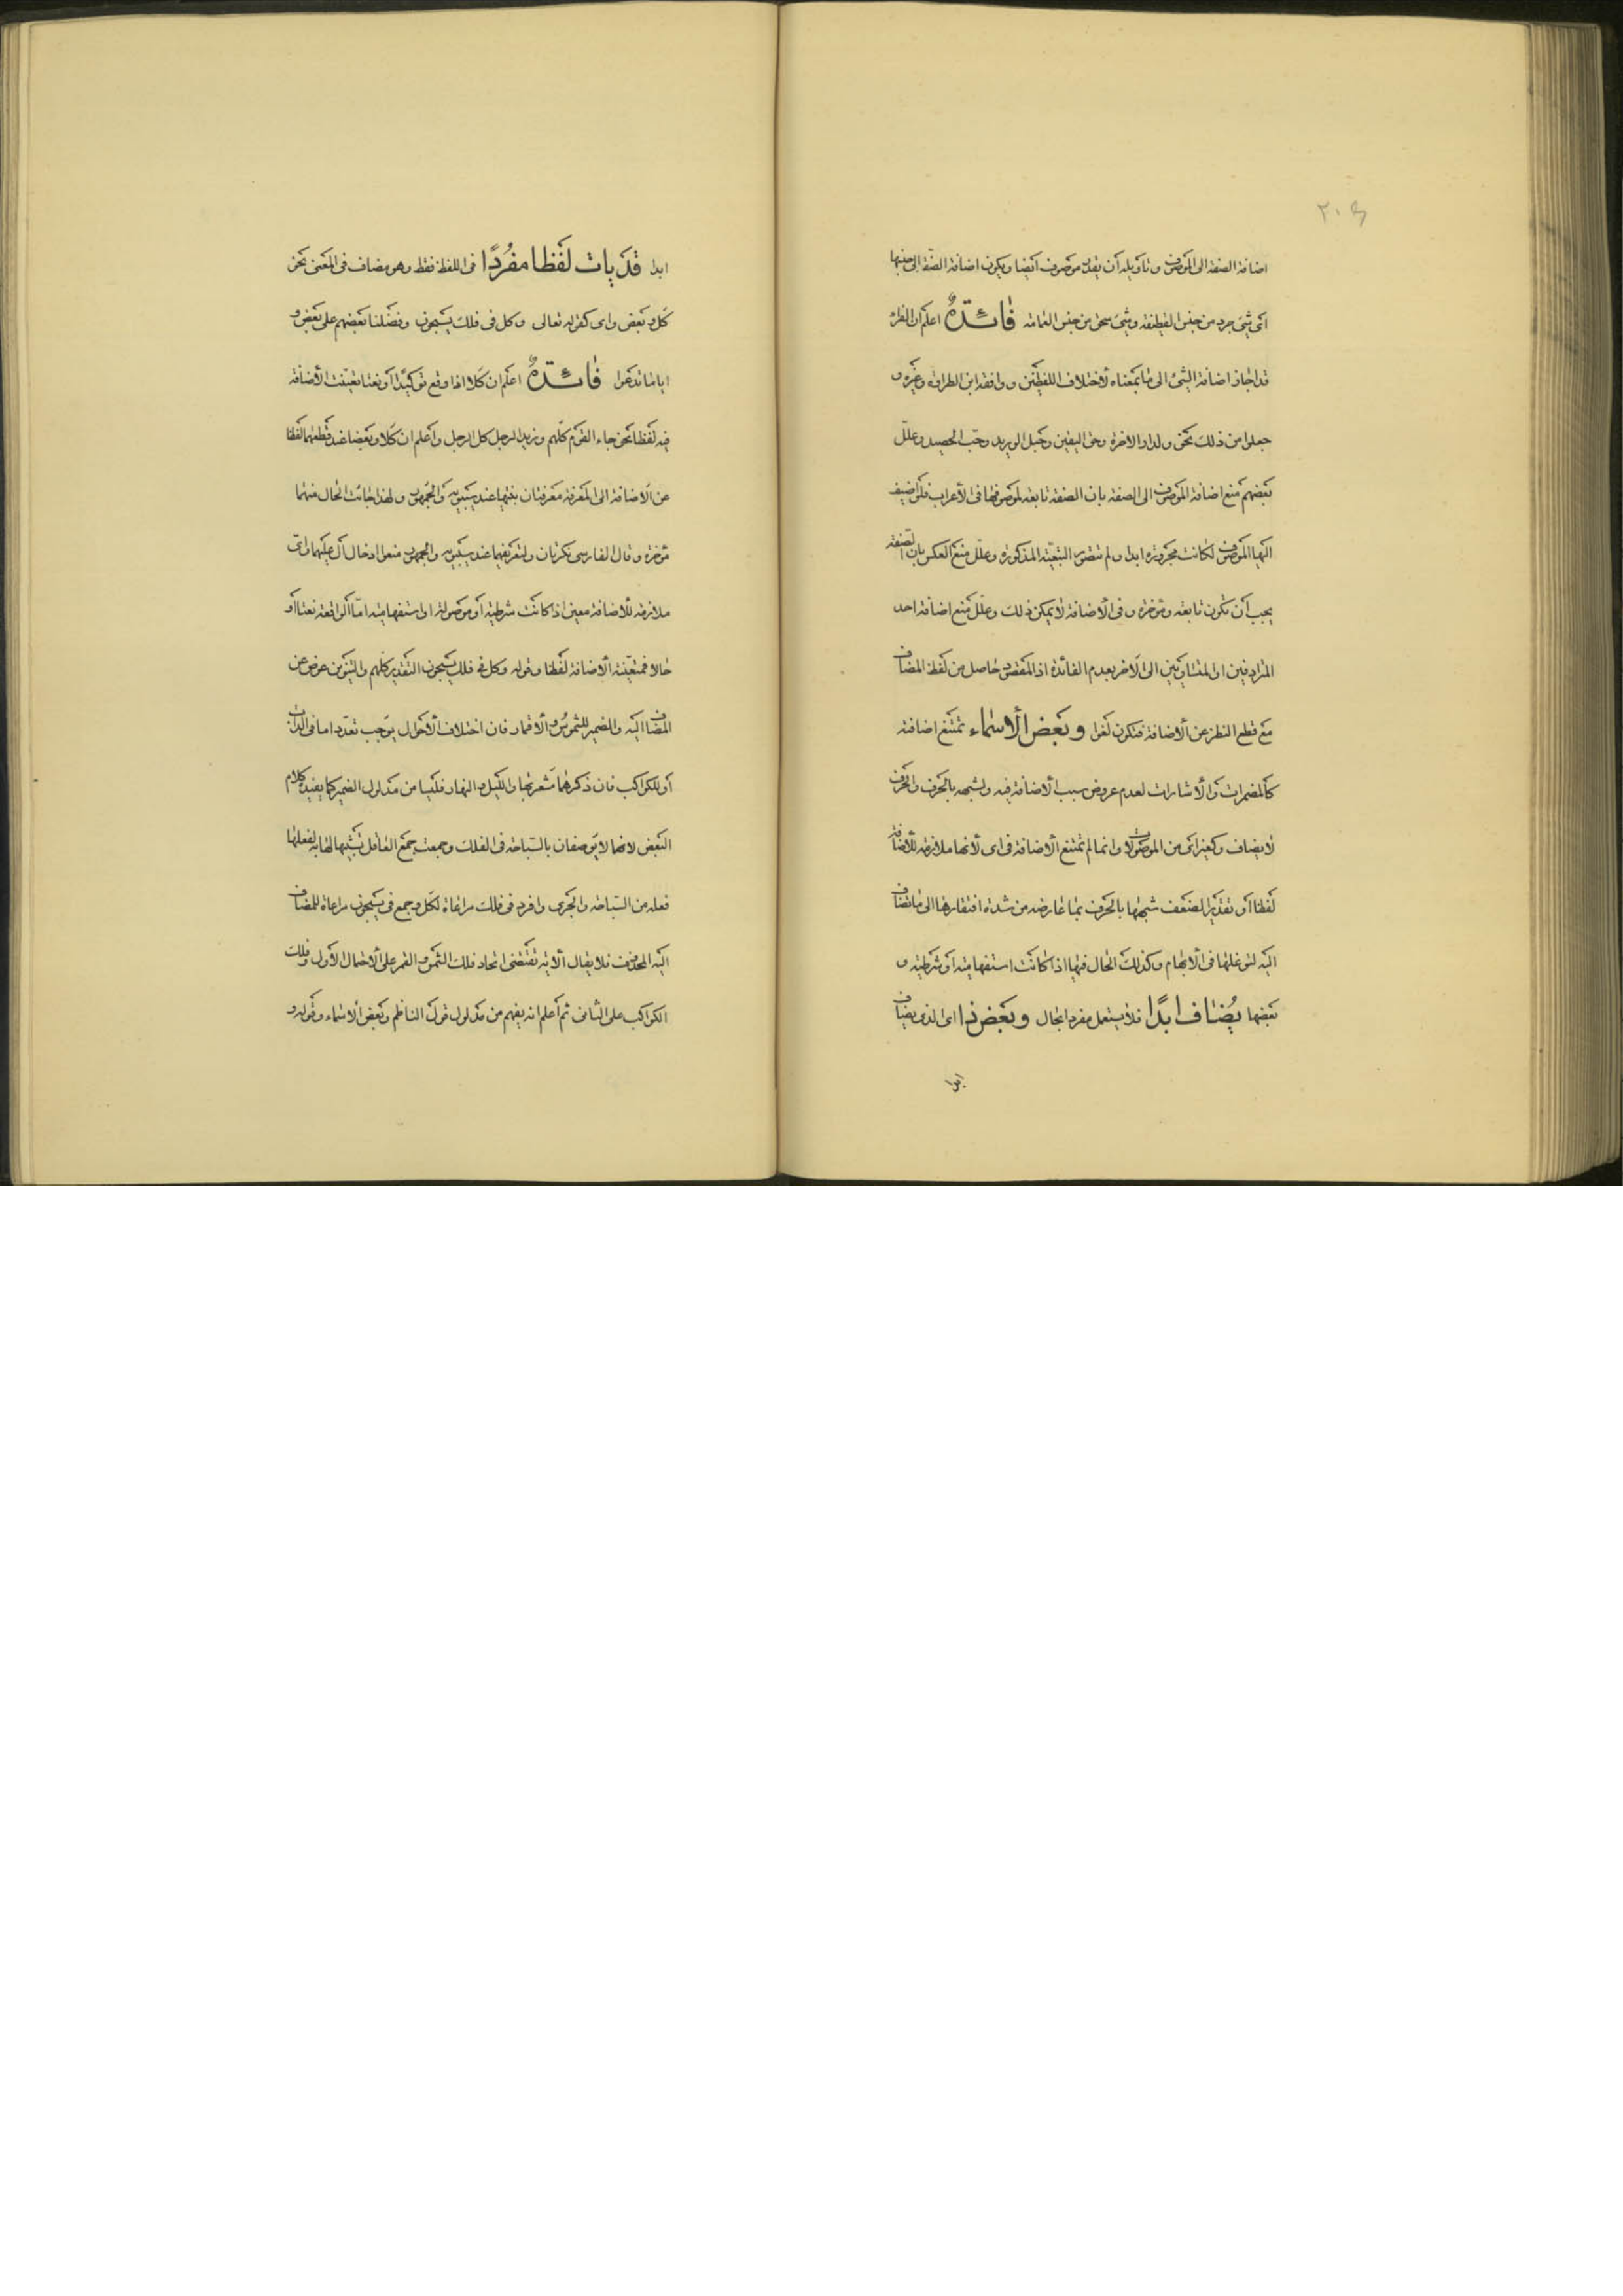 ٢٠٤
اضافة الصفة الى الموصوف وتاويله أن يقدر موصوف أيضا ويكون اضافة الصفة الى جنسها
اى شئ جرد من جنس القطيفة وشئ سحق من جنس العمامة فائدة اعلم ان الفراء
قد اجاز اضافة الشئ الى ما بمعناه لاختلاف اللفظين ووافقه ابن الطراوة وغيره و
جعلوا من ذلك نحو ولدار الاخرة وحق اليقين وحبل الوريد وحب الحصيد وعلل
بعضهم منع اضافة الموصوف الى الصفة بان الصفة تابعة لموصوفها فى الاعراب فلو اضيف
اليها الموصوف لكانت مجرورة ابدا ولم تتصور التبعية المذكورة وعلل منع العكس بان الصفة
يجب أن تكون تابعة ومؤخرة وفى الاضافة لا يمكن ذلك وعلل منع اضافة احد
المترادفين او المتساويين الى الاخر بعدم الفائدة اذ المقصود حاصل من لفظ المضاف
مع قطع النظر عن الاضافة فتكون لغوا وبعض الاسماء تمتنع اضافته
كالمضمرات والاشارات لعدم عروض سبب الاضافة فيه ولشبهه بالحرف والحرف
لا يضاف وكغير اى من الموصولات وانما لم تمتنع الاضافة فى اى لأنها ملازمة للاضافة
لفظا أو تقديرا لضعف شبهها بالحرف بما عارضه من شدة افتقارها الى ما تضاف
اليه لتوغلها فى الابهام وكذلك الحال فيها اذا كانت استفهامية أو شرطية و
بعضها يضاف ابدًا فلا يستعمل مفردا بحال وبعض ذا اى الذى يضاف
ابدا
ابدا قد يات لفظا مفردًا فى اللفظ فقط وهو مضاف فى المعنى نحو
كل وبعض واى كقوله تعالى وكل فى فلك يسبحون وفضلنا بعضهم على بعض و
ايا ما تدعوا فائدة اعلم ان كلا اذا وقع توكيدًا أو نعتا تعينت الاضافة
فيه لفظا نحو جاء القوم كلهم وزيد الرجل كل الرجل واعلم ان كلا وبعضا عند قطعهما لفظا
عن الاضافة الى المعرفة معرفتان بنيتها عند سيبويه والجمهور ولهذا جائت الحال منهما
مؤخرة وقال الفارسى نكرتان ولتعريفهما عند سيبويه والجمهور منعوا ادخال أل عليهما واى
ملازمة للاضافة معنى اذا كانت شرطية أو موصولة او استفهامية امّا الواقعة نعتا أو
حالا فمتعينة الاضافة لفظا وقوله وكل فى فلك يسبحون التقدير كلهم والتنوين عوض عن
المضاف اليه والضمير للشموس والاقمار فان اختلاف الاحوال يوجب تعدد اما فى الذات
أو للكواكب فان ذكرهما مشعر بها والليل والنهار فليسا من مدلول الضمير كما يفيده كلام
البعض لانهما لا يوصفان بالسباحة فى الفلك وجمعت جمع العاقل تشبيها لها به لفعلها
فعله من السباحة والجرى وافرد فى فلك مراعاة لكل وجمع فى يسبحون مراعاة للمضاف
اليه المحذوف فلا يقال الاية تقتضى اتحاد فلك الشمس والقمر على الاحتمال الاول وفلك
الكواكب على الثانى ثم اعلم انه يفهم من مدلول قول الناظم وبعض الاسماء وقوله و